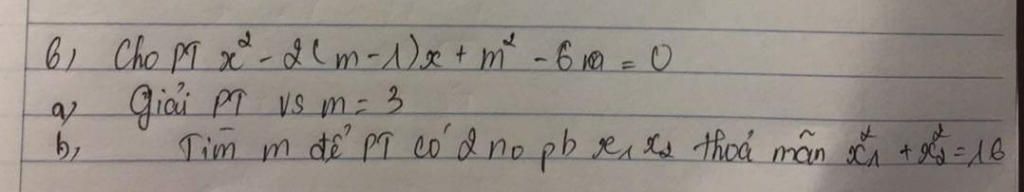 6) Cho PT x² - 2(m-1)x + m² - 6m = 0
a, Giải PT vs m = 3
b, Tìm m để PT có 2 no pb x₁ x₂ thoả mãn x₁² + x₂² = 16